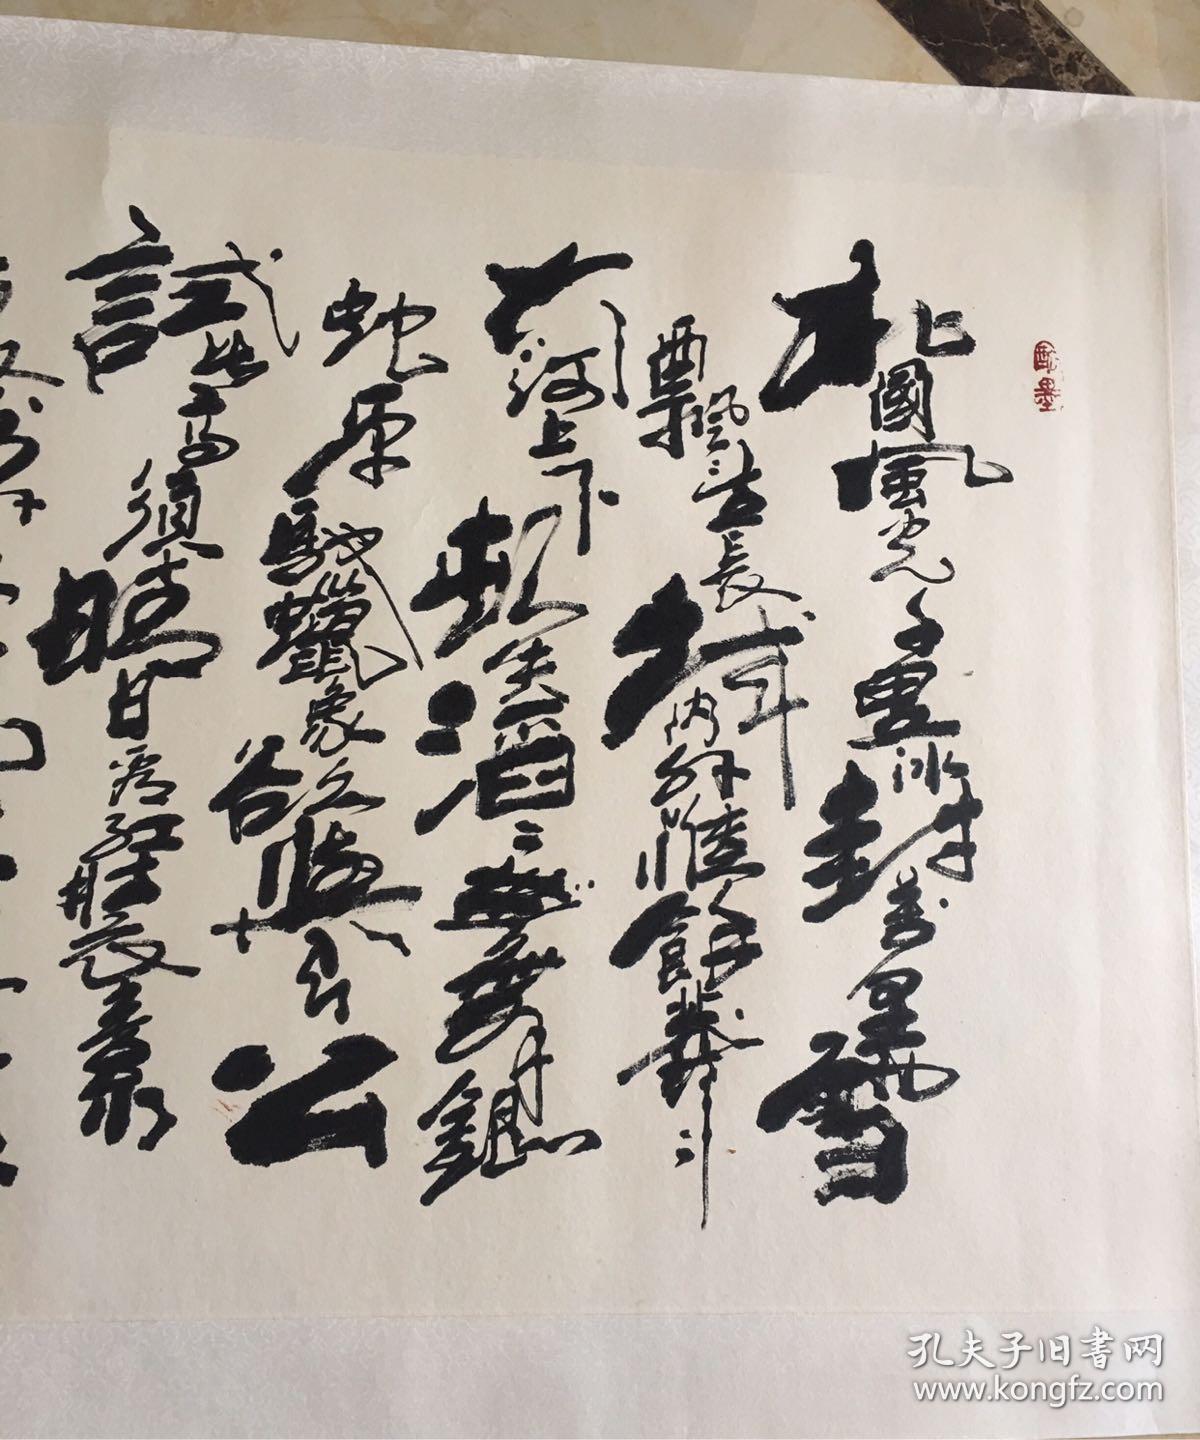 北國風光千里冰封萬里雪
飄望長城内外惟餘莽〻
大河上下頓失滔〻山舞銀
蛇原馳蠟象欲與天公
試比高須晴日看紅裝素裹
孔夫子旧書网
www.kongfz.com